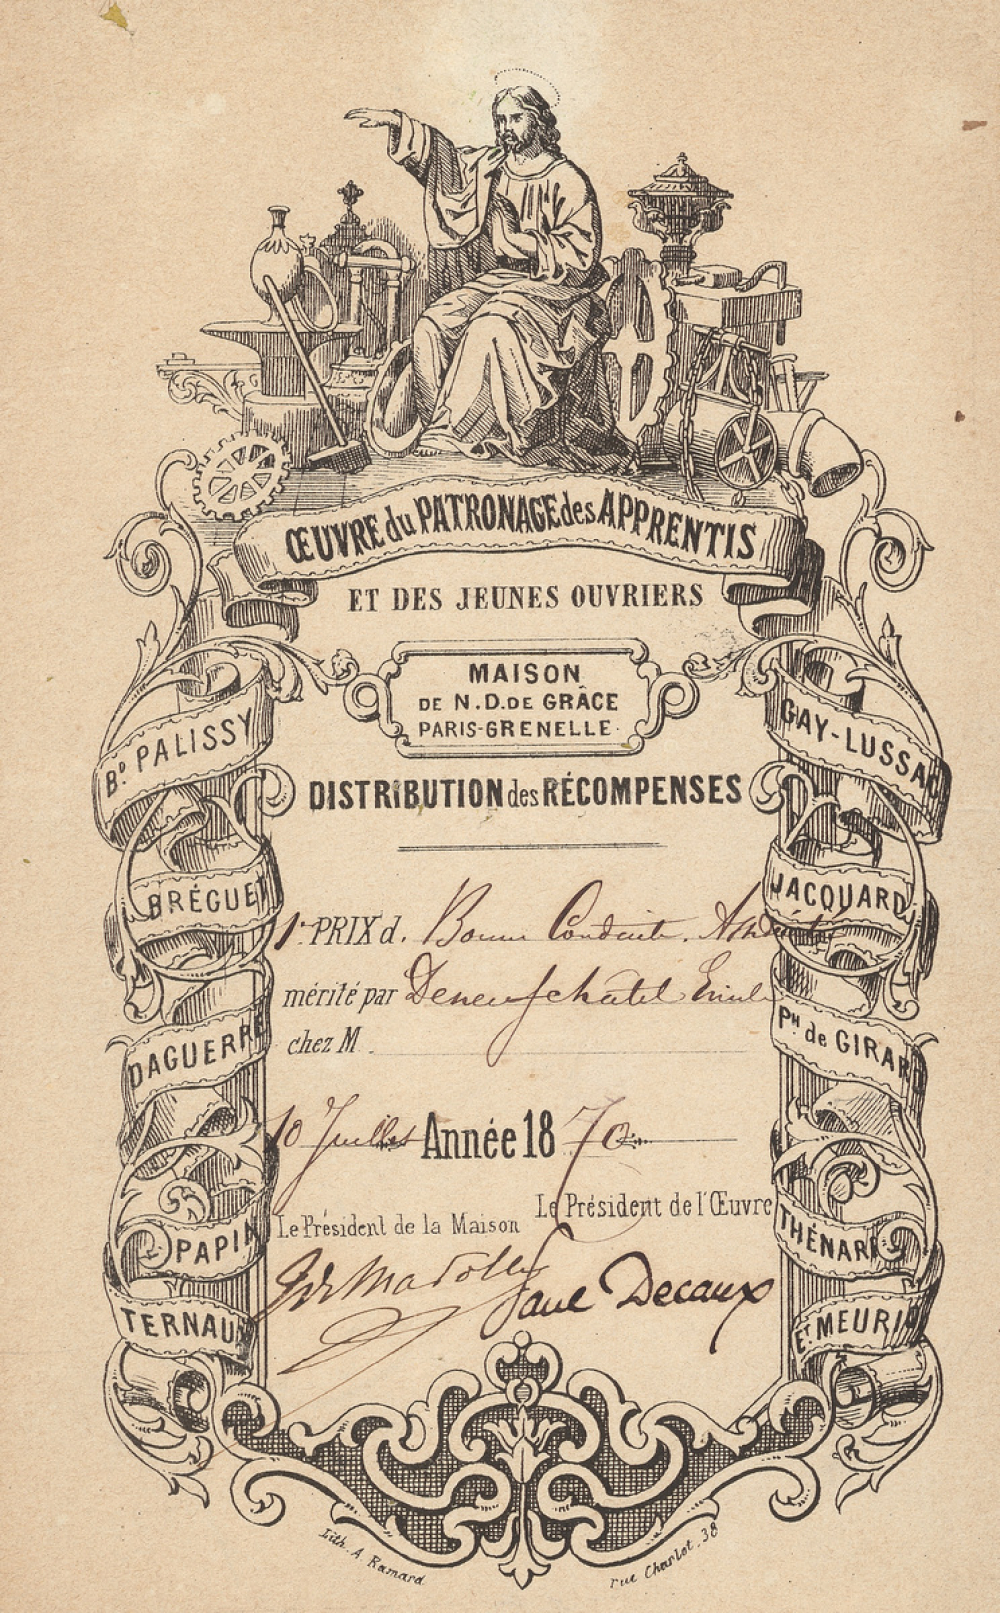 ŒUVRE du PATRONAGE des APPRENTIS
ET DES JEUNES OUVRIERS
MAISON
DE N.D. DE GRÂCE
PARIS-GRENELLE.
DISTRIBUTION des RÉCOMPENSES
1er PRIX d. Bonne Conduite. Assiduité
mérité par Deneufchatel Emile
chez M.
10 Juillet Année 1870
Le Président de la Maison
Le Président de l'Œuvre
Paul Decaux
Bd PALISSY
BRÉGUET
DAGUERRE
PAPIN
TERNAUX
GAY-LUSSAC
JACQUARD
PH de GIRARD
THÉNARD
ET MEURIC
Lith. A. Ramard
rue Charlot, 38